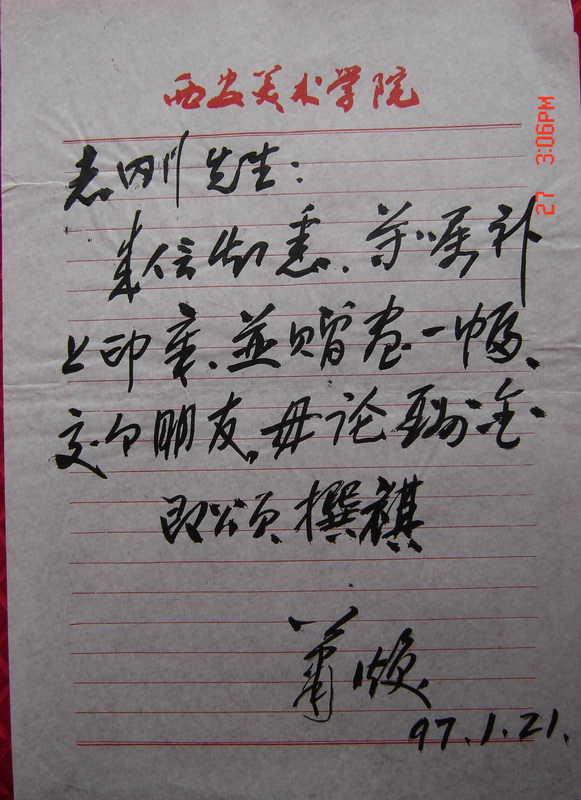 西安美术学院
志刚先生：
来信知悉、尊嘱补
上印章、並赠画一幅、
交个朋友。毋论酬金
即颂 撰祺
萧焕
97.1.21.
27 3:06PM